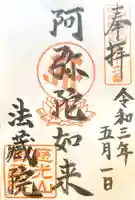 奉拝
令和三年
五月一日
阿弥陀如来
法蔵院